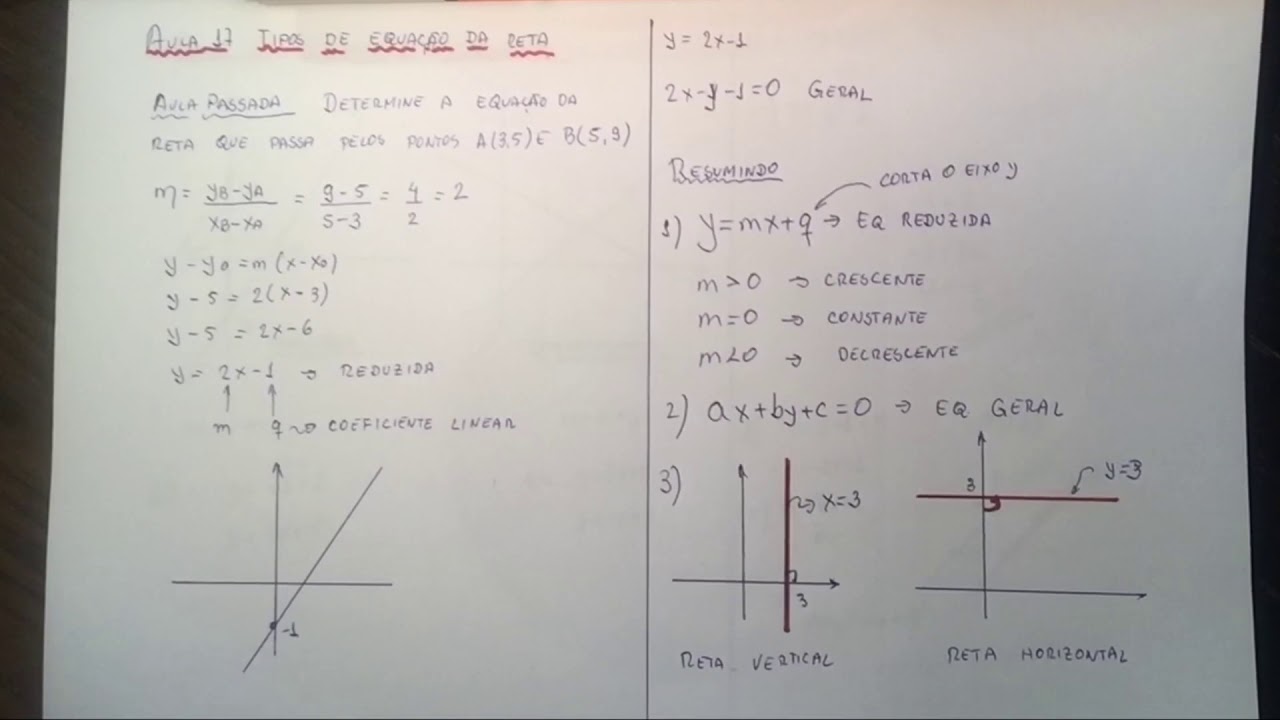 AULA 17 TIPOS DE EQUAÇÃO DA RETA
AULA PASSADA DETERMINE A EQUAÇÃO DA
RETA QUE PASSA PELOS PONTOS A(3,5) E B(5,9)
m = yB-yA / xB-xA = 9-5 / 5-3 = 4/2 = 2
y - y0 = m (x-x0)
y - 5 = 2(x-3)
y - 5 = 2x-6
y = 2x-1 → REDUZIDA
m q → COEFICIENTE LINEAR
-1
y = 2x-1
2x-y-1=0 GERAL
RESUMINDO
CORTA O EIXO y
1) y=mx+q → EQ REDUZIDA
m>0 → CRESCENTE
m=0 → CONSTANTE
m<0 → DECRESCENTE
2) ax+by+c=0 → EQ GERAL
3)
x=3
3
RETA VERTICAL
3
y=3
RETA HORIZONTAL